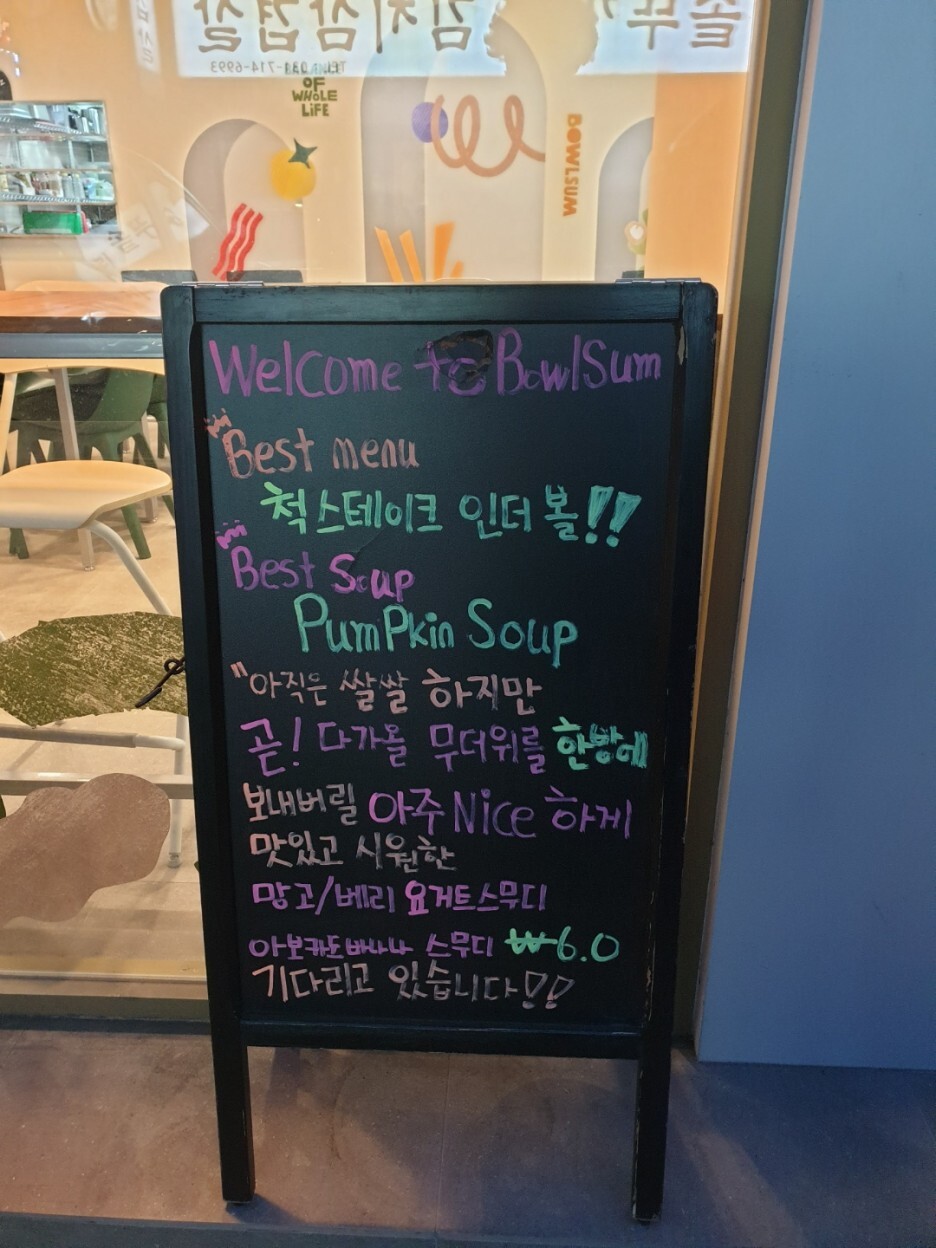 김치삼겹살
TEL. 031-714-6993
OF
WHOLE
LIFE
BOWLSUM
Welcome to BowlSum
Best menu
척스테이크 인더볼!!
Best Soup
PumPkin Soup
"아직은 쌀쌀 하지만
곧! 다가올 무더위를 한방에
보내버릴 아주 Nice 하게
맛있고 시원한
망고/베리 요거트스무디
아보카도바나나 스무디 ₩6.0
기다리고 있습니다!!